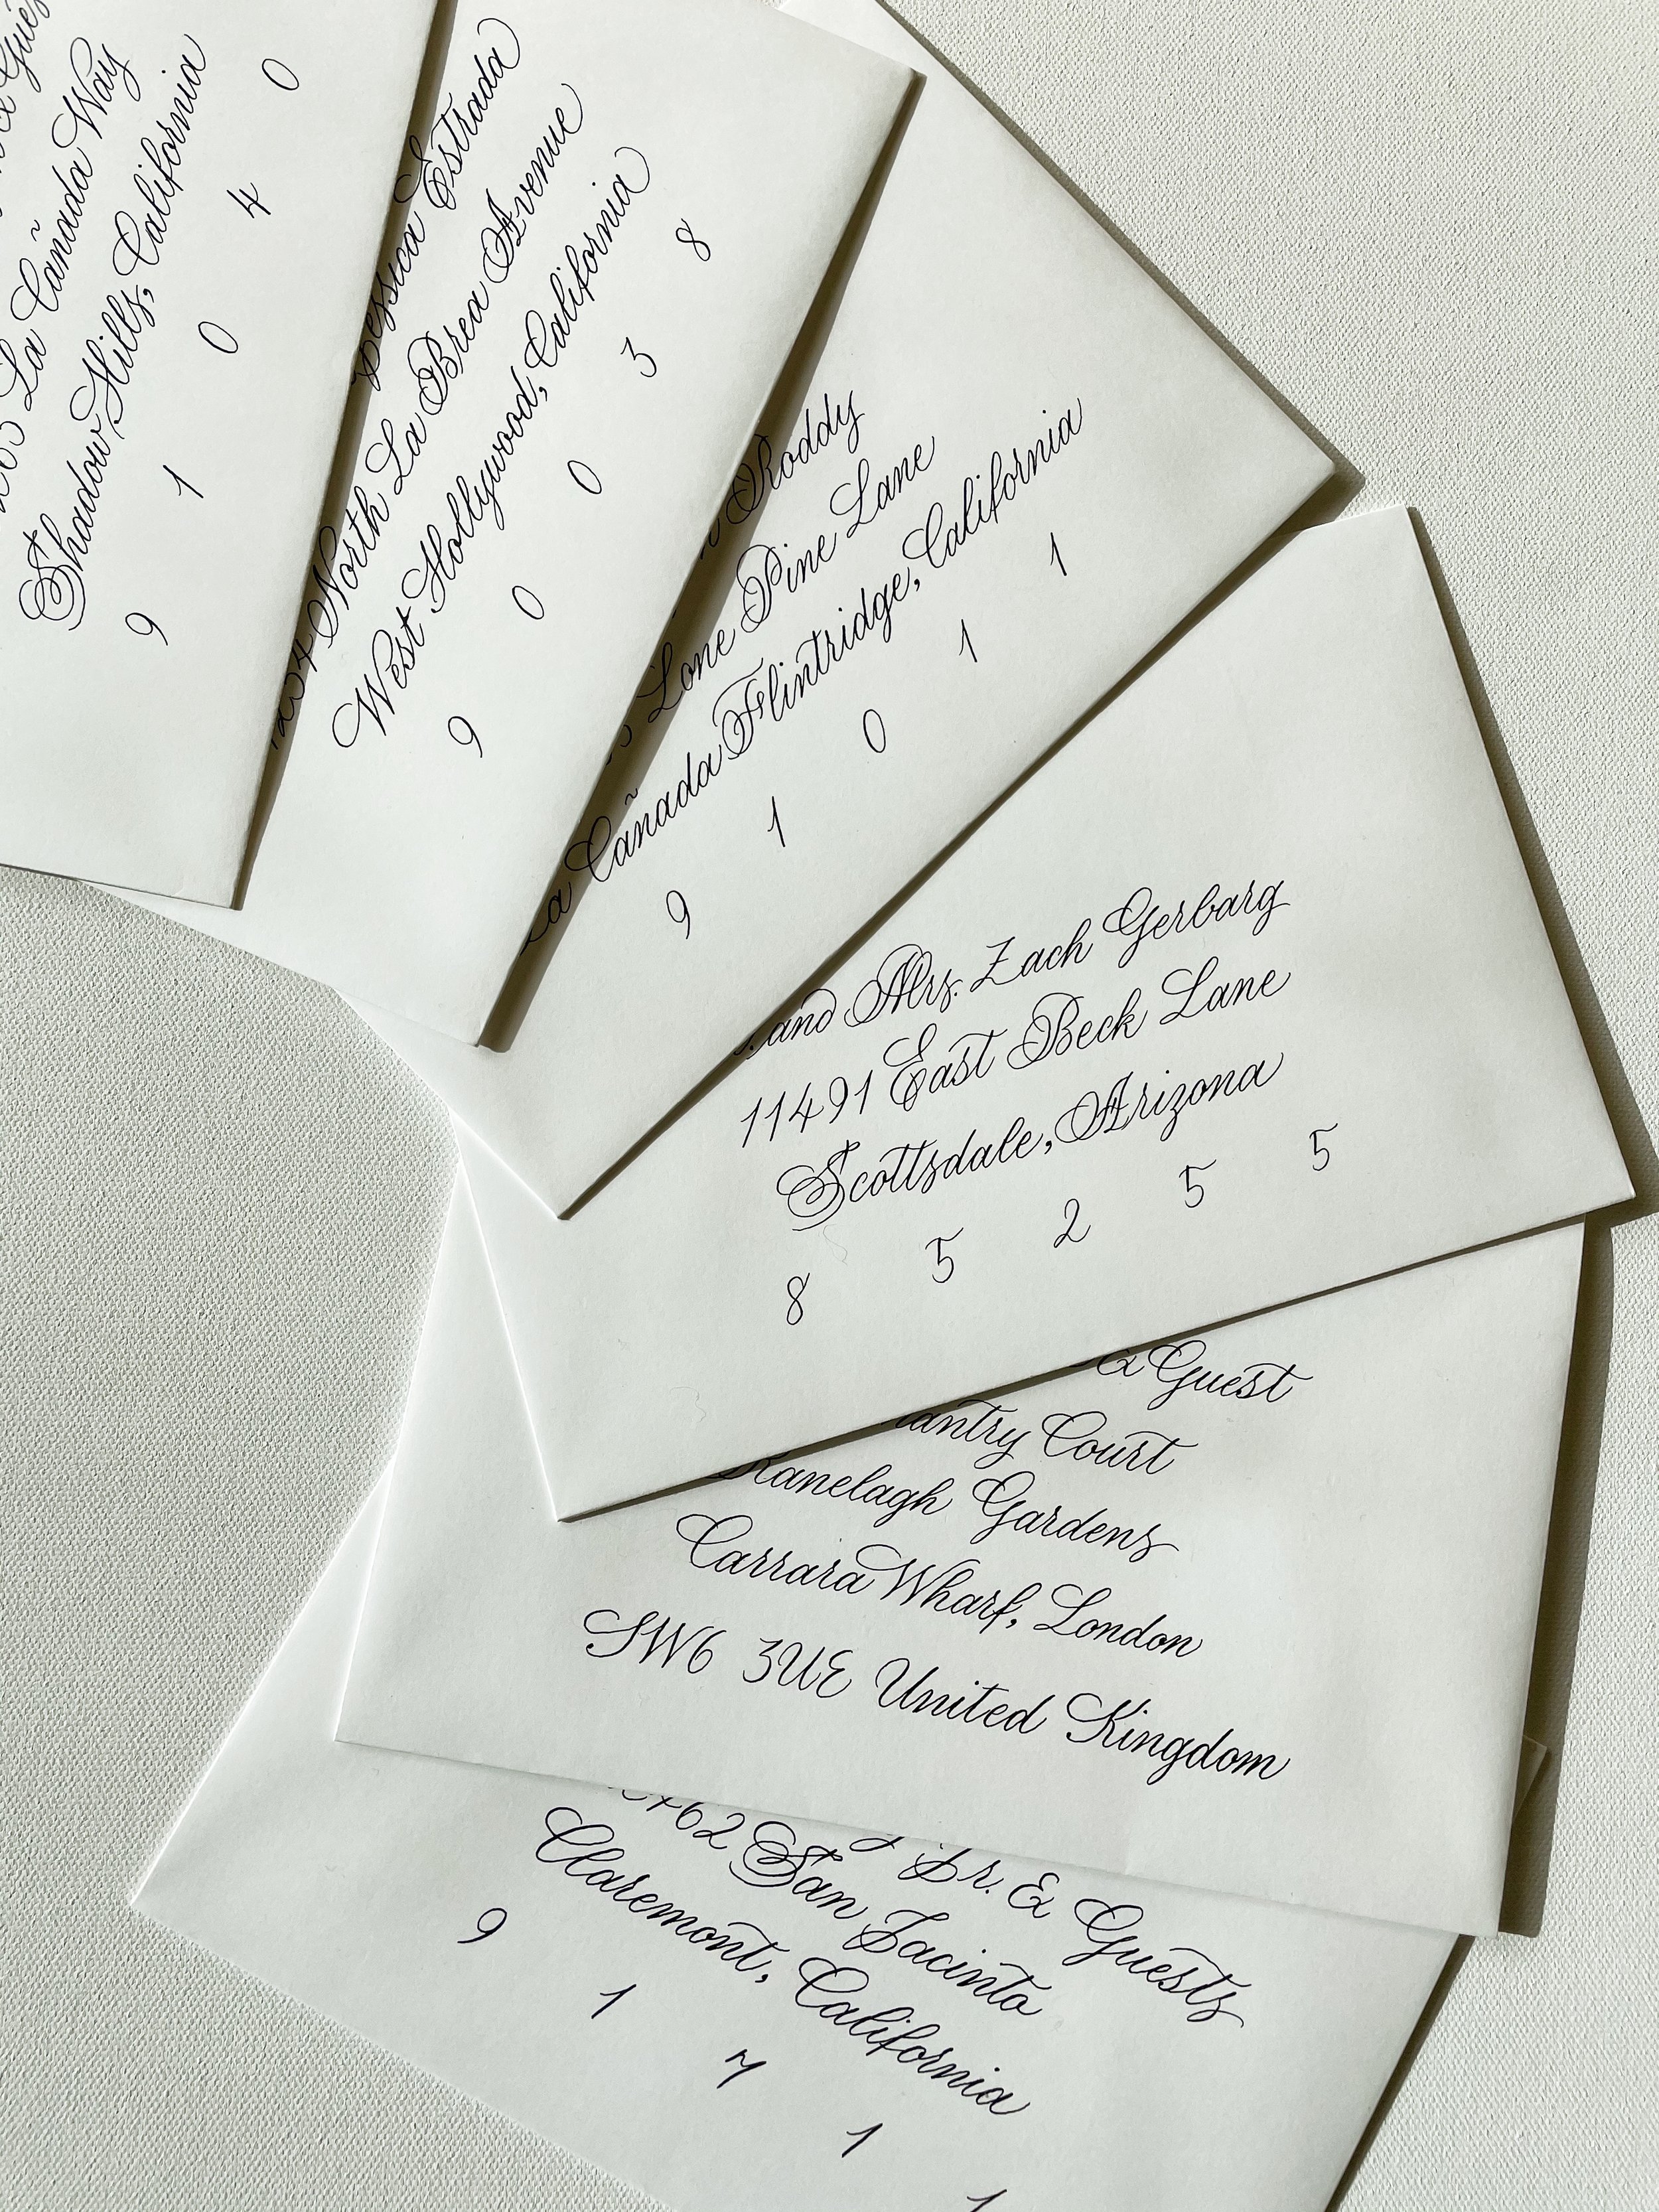 & Guest
La Cañada Way
Shadow Hills, California
9 1 0 4 0
Jessica Estrada
North La Brea Avenue
West Hollywood, California
9 0 0 3 8
Roddy
Lone Pine Lane
La Cañada Flintridge, California
9 1 0 1 1
and Mrs. Zach Gerbarg
11491 East Beck Lane
Scottsdale, Arizona
8 5 2 5 5
& Guest
Court
Ranelagh Gardens
Carrara Wharf, London
SW6 3UE United Kingdom
Dr. & Guests
San Jacinto
Claremont, California
9 1 7 1 1